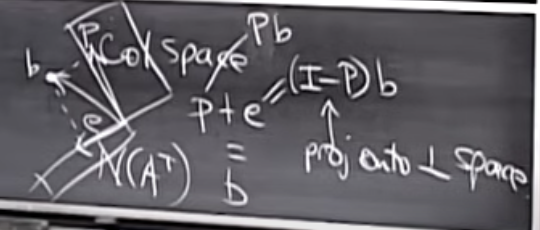 Pb
P Col space
b
p + e = (I-P)b
e
=
N(Aᵀ)
b
proj onto ⊥ space